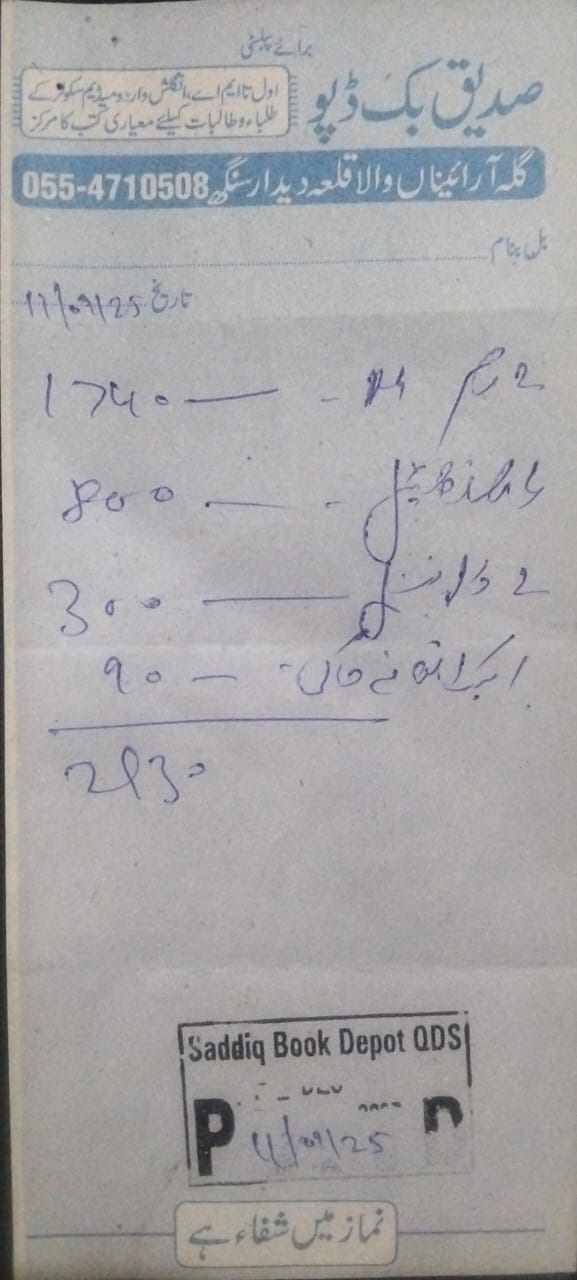 برائے پبلسٹی
صدیق بک ڈپو
اول تا ایم اے، انگلش و اردو میڈیم سکولز کے
طلباء و طالبات کیلئے معیاری کتب کا مرکز
گلہ آرائیناں والا قلعہ دیدار سنگھ 055-4710508
بل بنام
تاریخ 11/09/25
2 رم 1740
800
2 300
90
2930
Saddiq Book Depot QDS
P D
11/09/25
نماز میں شفاء ہے